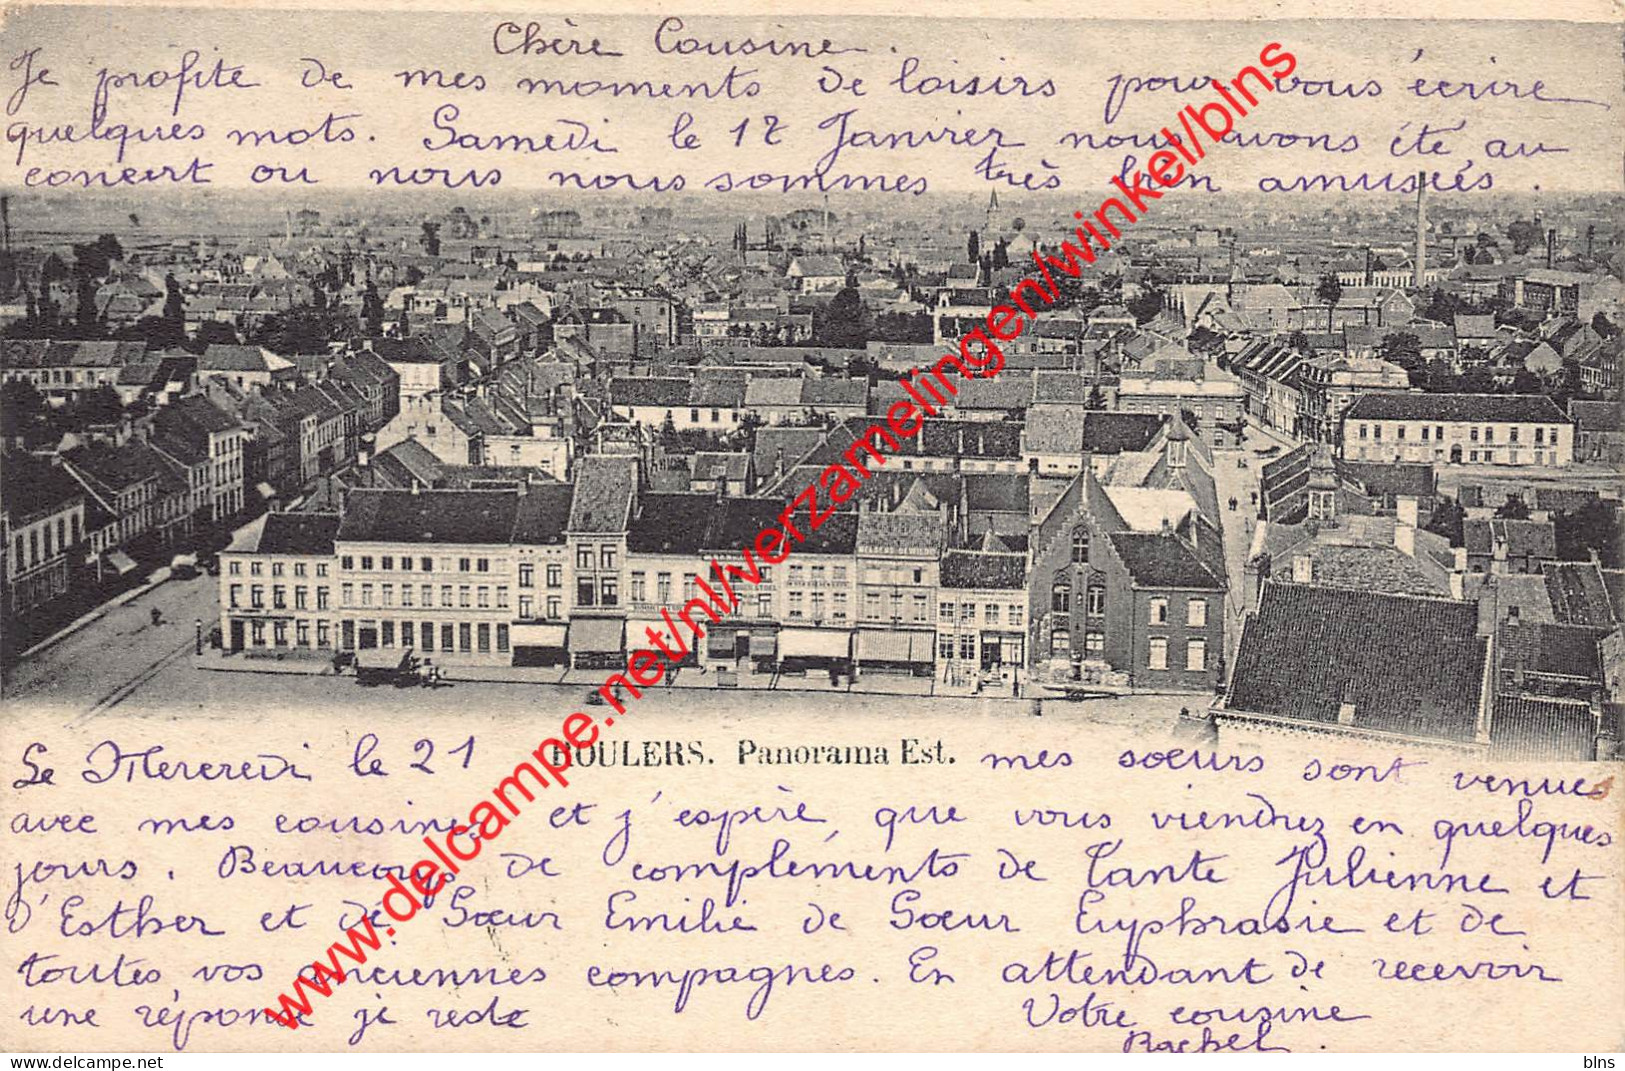 Chère Cousine.
Je profite de mes moments de loisirs pour vous écrire
quelques mots. Samedi le 17 Janvier nous avons été au
concert ou nous nous sommes très bien amusées.
ROULERS. Panorama Est.
Le Mercredi le 21 mes sœurs sont venues
avec mes cousines et j'espère que vous viendrez en quelques
jours. Beaucoup de complements de Tante Julienne et
d'Esther et de Sœur Emilie de Sœur Euphrasie et de
toutes vos anciennes compagnes. En attendant de recevoir
une réponse je reste Votre cousine
Rachel.
www.delcampe.net/nl/verzamelingen/winkel/blns
blns